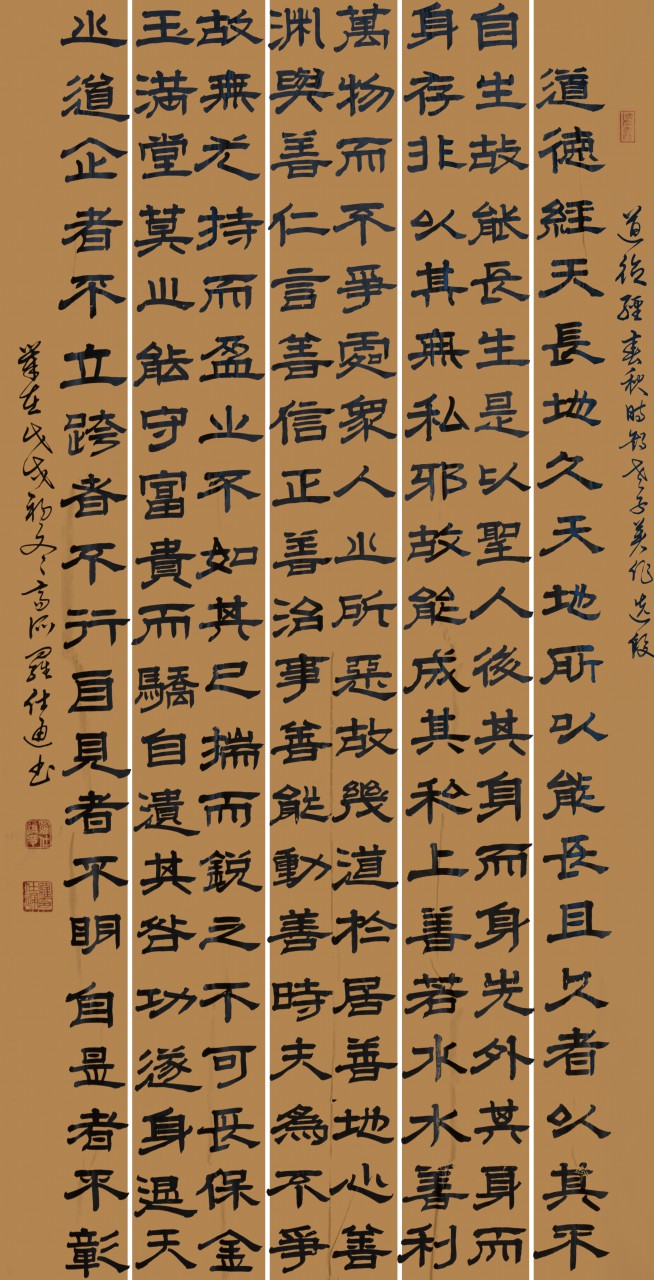 道德經春秋時老子作選段
道德經天長地久天地所以能長且久者以其不
自生故能長生是以聖人後其身而身先外其身而
身存非以其無私邪故能成其私上善若水水善利
萬物而不爭處衆人之所惡故幾道於居善地心善
淵與善仁言善信正善治事善能動善時夫為不爭
故無尤持而盈之不如其已揣而銳之不可長保金
玉滿堂莫之能守富貴而驕自遺其咎功遂身退天
之道企者不立跨者不行自見者不明自是者不彰
歲在戊戌初羅仕通書